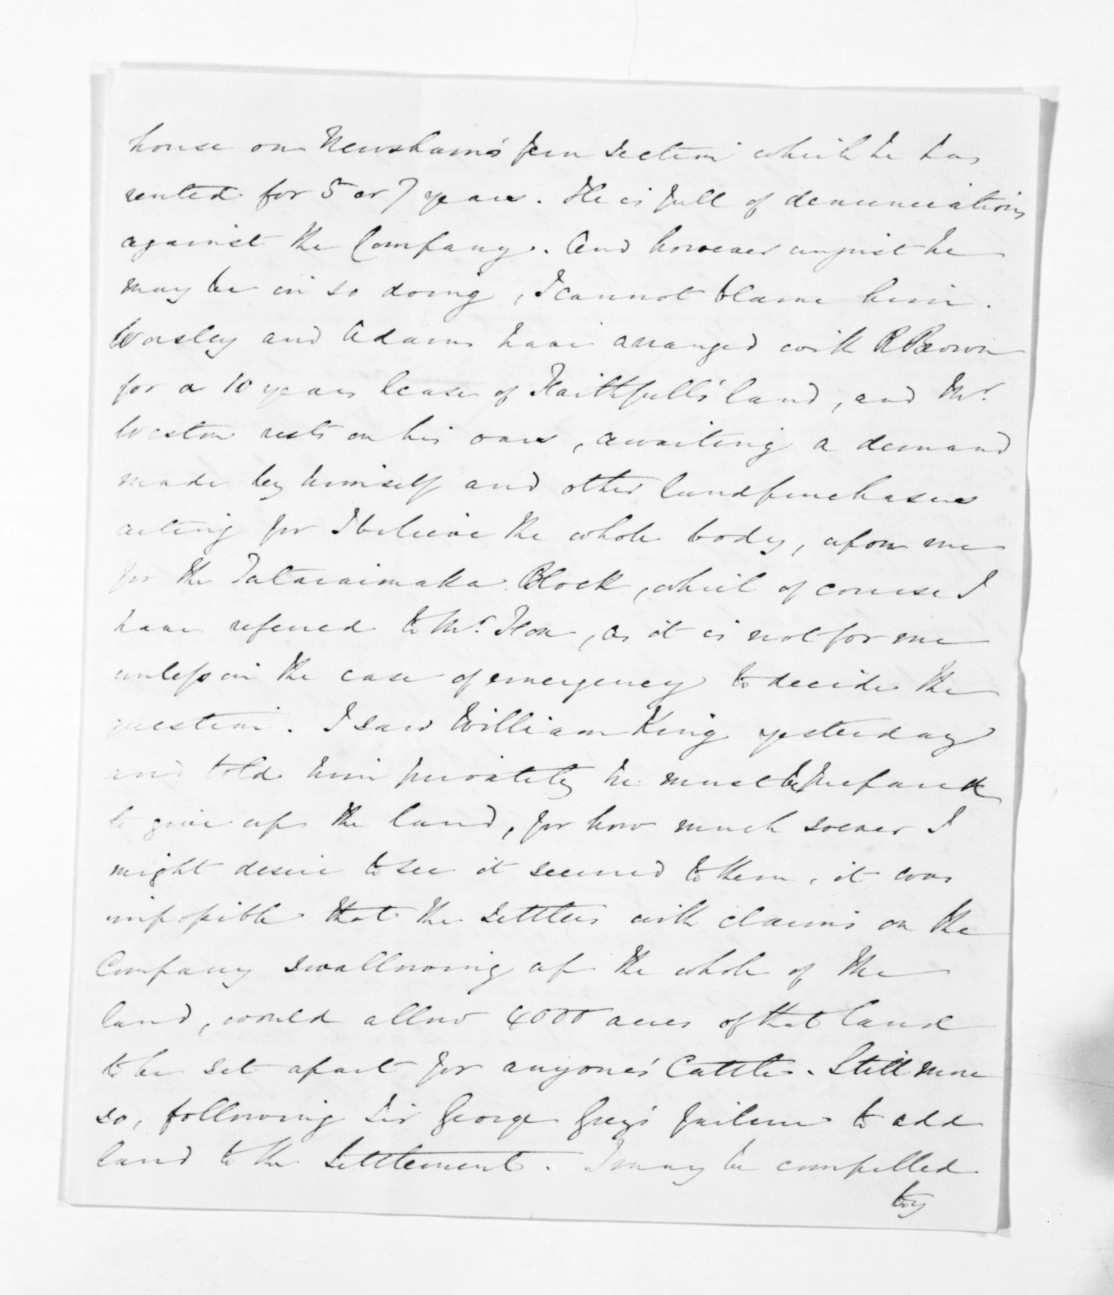 house on Newsham's fern section which he has
rented for 5 or 7 years. He is full of denunciations
against the Company. And however unjust he
may be in so doing, I cannot blame him.
Worsley and Adams have arranged with R Brown
for a 10 years lease of Faithfull's land, and Mr.
Weston rests on his oars, awaiting a demand
made by himself and other landpurchasers
acting for I believe the whole body, upon me
for the Tataraimaka Block, which of course I
have referred to Mr. Fox, as it is not for me
unless in the case of emergency to decide the
question. I saw William King yesterday
and told him privately he must be prepared
to give up the land, for how much soever I
might desire to see it secured to them, it was
impossible that the settlers with claims on the
Company swallowing up the whole of the
land, would allow 4000 acres of that land
to be set apart for anyone's Cattle. Still more
so, following Sir George Grey's failure to add
land to the Settlement. I may be compelled